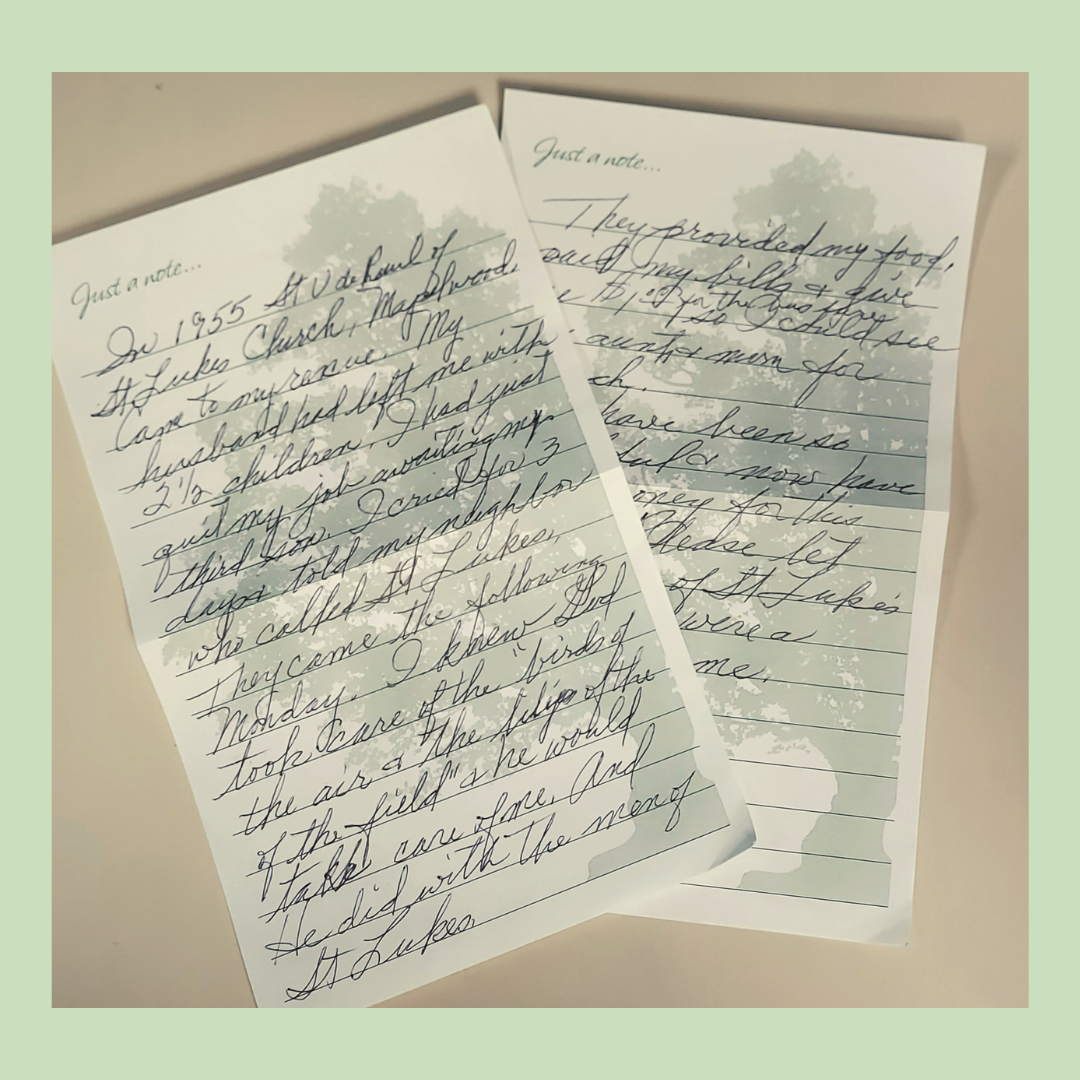 Just a note...
In 1955 St V de Paul of
St Lukes Church, Maplewood,
Came to my rescue. My
husband had left me with
2 1/2 children. I had just
quit my job awaiting my
third son. I cried for 3
days told my neighbor
who called St Lukes.
They came the following
Monday. I knew God
took care of the "birds of
the air & "the lilys of the
of the field" & he would
take care of me. And
He did with the men of
St Lukes
Just a note...
They provided my food,
paid my bills & give
for the bus fares
so I could see
aunt & mom for
ch.
have been so
& now have
oney for this
Please let
of St Luke's
were a
me.